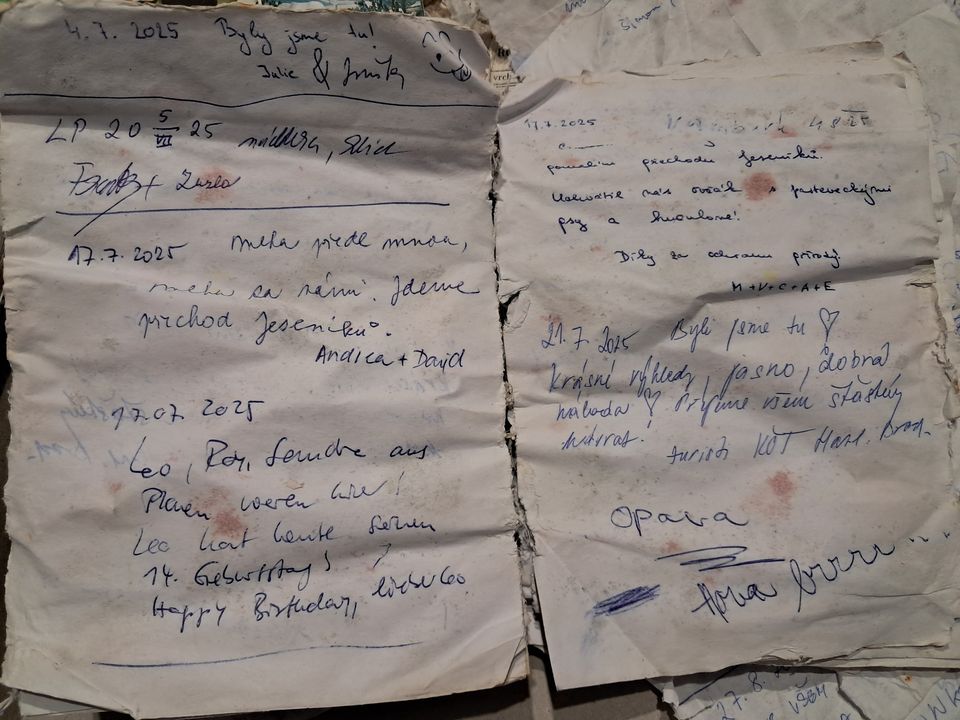 4. 7. 2025 Byly jsme tu!
Julie &
LP 20 5/VII 25 nádhera,
+
17.7.2025 mlha přede mnou,
mlha za námi. Jdeme
přechod Jeseníků.
Andrea + David
17.07 2025
Leo, Roy, Sandra aus
Plauen waren hier!
Leo hat heute seinen
14. Geburtstag!
Happy Birthday, lieber Leo
vrch
17.7.2025
přechodu Jeseníků.
nás ovčák s pasteveckými
psy a
Díky za ochranu přírody.
M+V+C+A+E
21.7.2025 Byli jsme tu ♡
Krásné výhledy, jasno, dobrá
nálada ♡ Přejeme všem šťastný
návrat!
turisti KČT Havl. Brod
Opava
brrrr...
27. 8.